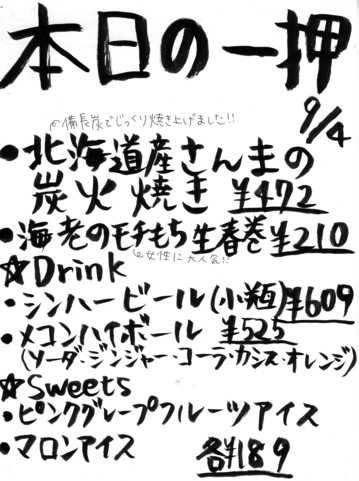 本日の一押
9/4
備長炭でじっくり焼き上げました!!
・北海道産さんまの
炭火焼き ¥472
・海老のモチもち生春巻 ¥210
女性に大人気!!
☆Drink
・シンハービール(小瓶)¥609
・メコンハイボール ¥525
(ソーダ・ジンジャー・コーラ・カシス・オレンジ)
☆Sweets
・ピンクグレープフルーツアイス
・マロンアイス 各¥189